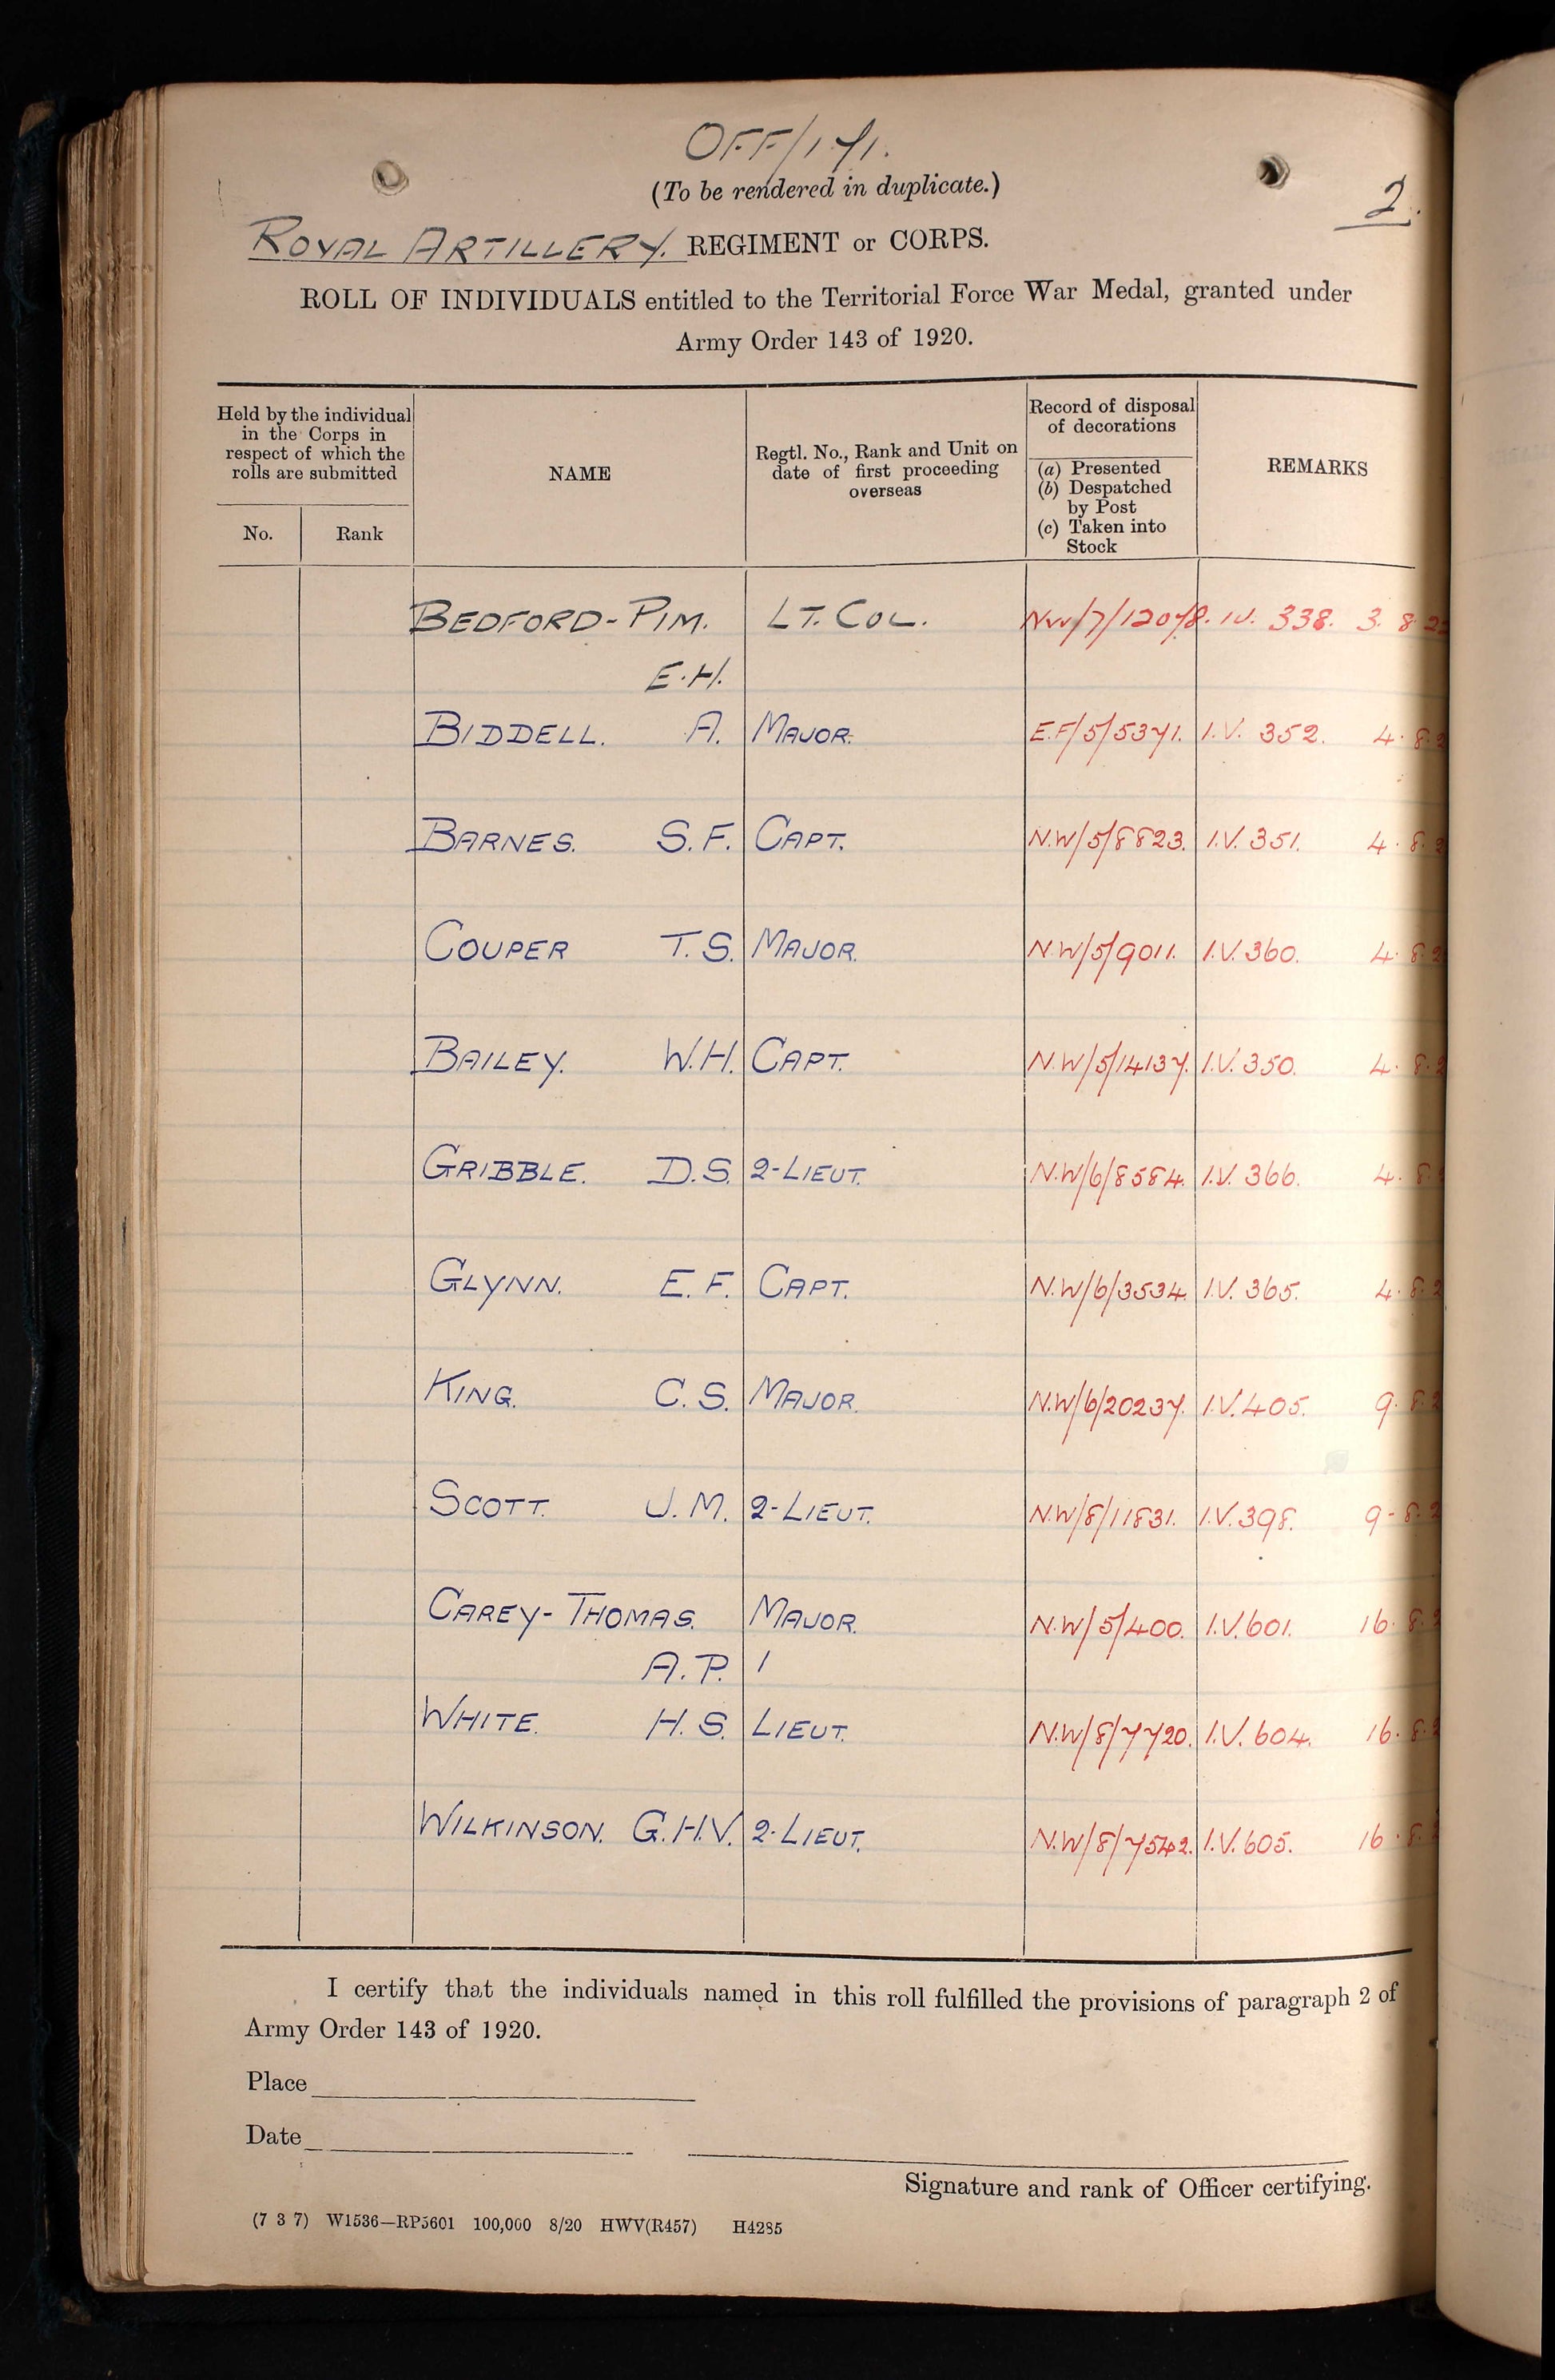 OFF/171.
(To be rendered in duplicate.)
2.
ROYAL ARTILLERY. REGIMENT or CORPS.
ROLL OF INDIVIDUALS entitled to the Territorial Force War Medal, granted under
Army Order 143 of 1920.
Held by the individual
in the Corps in
respect of which the
rolls are submitted
No.
Rank
NAME
Regtl. No., Rank and Unit on
date of first proceeding
overseas
Record of disposal
of decorations
(a) Presented
(b) Despatched
by Post
(c) Taken into
Stock
REMARKS
BEDFORD-PIM. LT. COL. NW/7/12078. IV. 338. 3. 8. 22
E.H.
BIDDELL. A. MAJOR. E.F/5/5371. I.V. 352. 4. 8. 2
BARNES. S.F. CAPT. N.W/5/8823. I.V. 351. 4. 8. 2
COUPER T.S. MAJOR. N.W/5/9011. I.V. 360. 4. 8. 2
BAILEY. W.H. CAPT. N.W/5/14137. I.V. 350. 4. 8. 2
GRIBBLE. D.S. 2-LIEUT. N.W/6/8584. I.V. 366. 4. 8.
GLYNN. E.F. CAPT. N.W/6/3534. I.V. 365. 4. 8. 2
KING. C.S. MAJOR. N.W/6/20237. I.V. 405. 9. 8. 2
SCOTT. J.M. 2-LIEUT. N.W/8/11831. I.V. 398. 9-8. 2
CAREY-THOMAS. MAJOR. N.W/5/400. I.V. 601. 16. 8. 2
A.P. /
WHITE. H.S. LIEUT. N.W/8/7720. I.V. 604. 16. 8. 2
WILKINSON. G.H.V. 2-LIEUT. N.W/8/7542. I.V. 605. 16. 8.
I certify that the individuals named in this roll fulfilled the provisions of paragraph 2 of
Army Order 143 of 1920.
Place
Date
Signature and rank of Officer certifying.
(7 3 7) W1536—RP5601 100,000 8/20 HWV(R457) H4285